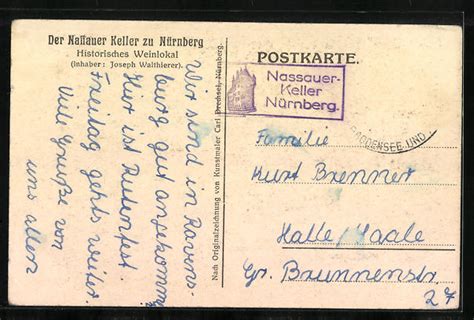 Der Nassauer Keller zu Nürnberg
Historisches Weinlokal
(Inhaber: Joseph Walthierer).
Wir sind in Ravens-
burg gut angekommen
Hier ist Rutenfest.
Freitag gehts weiter.
Viele Grüße von
uns allen
Nach Originalzeichnung von Kunstmaler Carl Drechsel, Nürnberg.
POSTKARTE.
Nassauer-
Keller
Nürnberg.
BODENSEE UND
Familie
Kurt Brenner
Halle/Saale
Gr. Brunnenstr
27